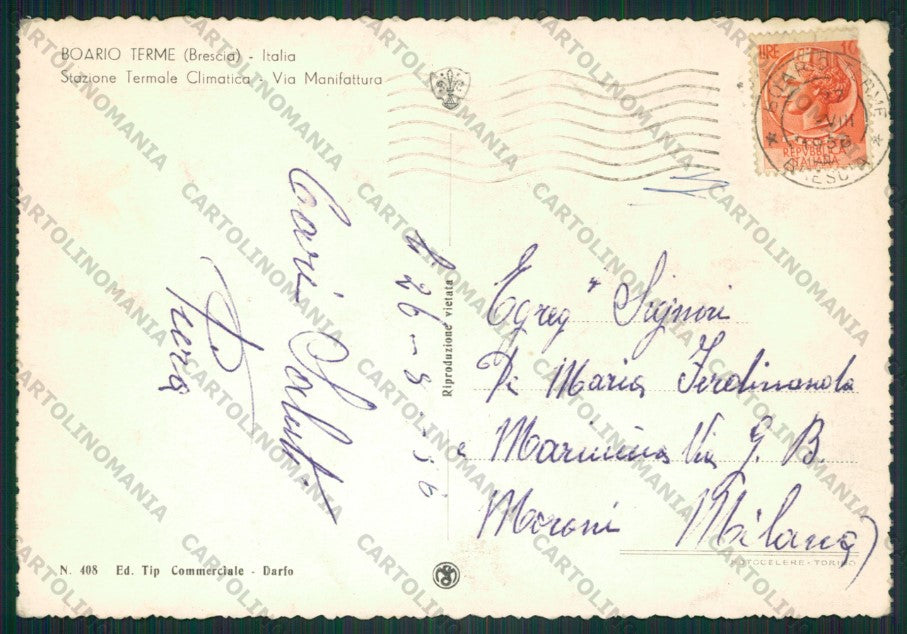 BOARIO TERME (Brescia) - Italia
Stazione Termale Climatica - Via Manifattura
LIRE 10
REPVBBLICA
ITALIANA
BOARIO TERME
VIII
1956
BRESCIA
Cari Saluti
Piera
26-8-56
Riproduzione vietata
Egreg Signori
Maria Ferdinanda
e Mariuccia Via G. B.
Moroni Milano
N. 408 Ed. Tip Commerciale - Darfo
FOTOCELERE - TORINO
CARTOLINOMANIA